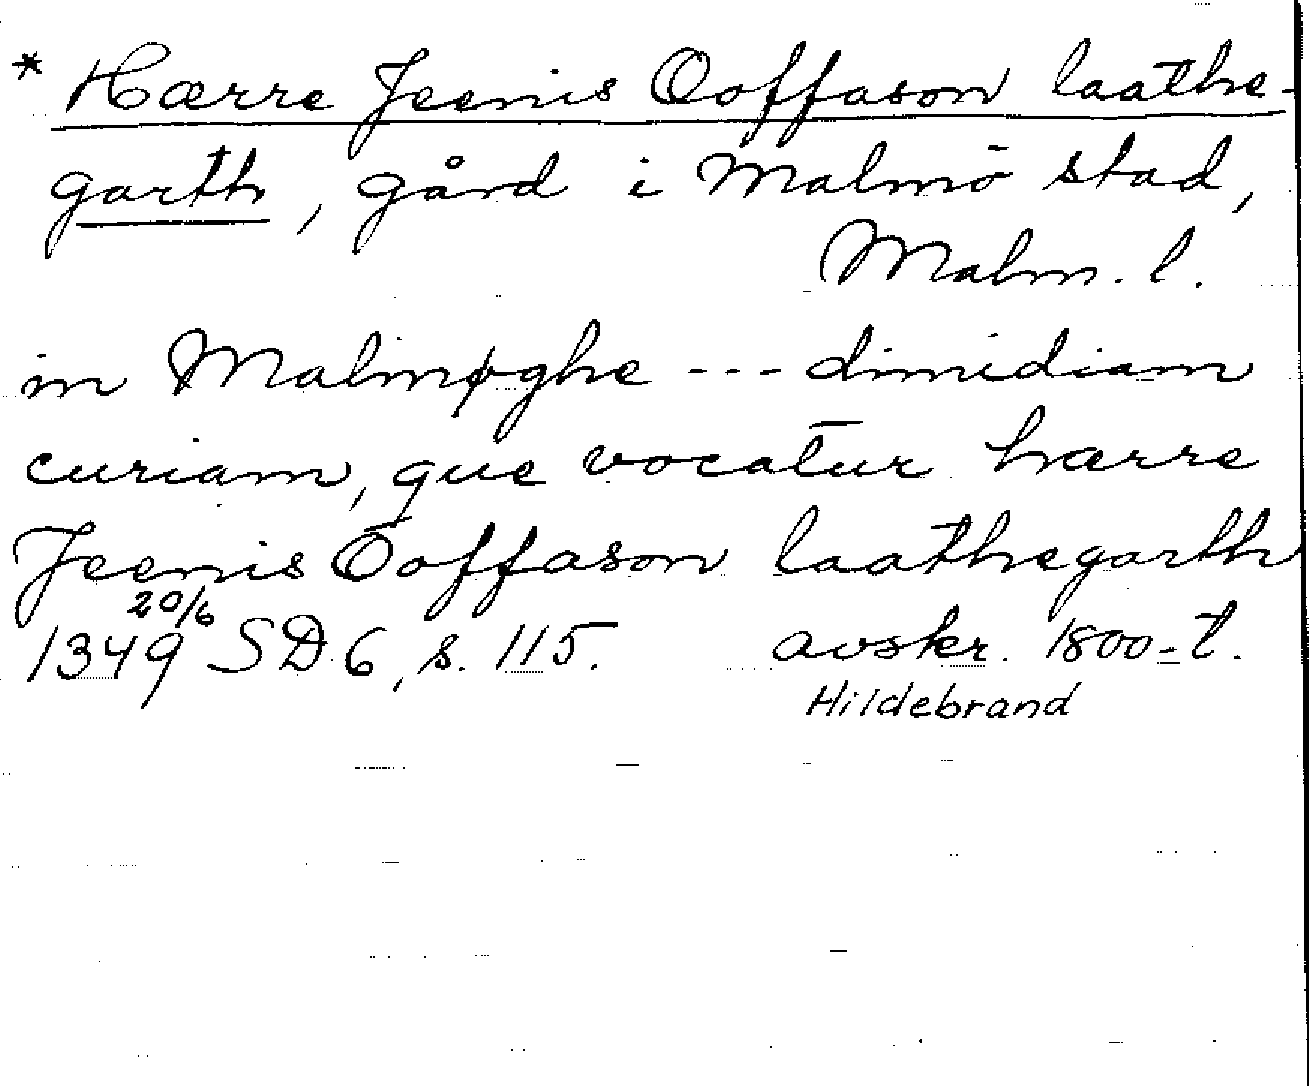 * Hærre Jeenis Ooffason laathe-
garth, gård i Malmö stad,
Malm. l.
in Malmøghe --- dimidiam
curiam, que vocatur hærre
Jeenis Ooffason laathegarth
1349 20/6 SD 6, s. 115. avskr. 1800-t.
Hildebrand